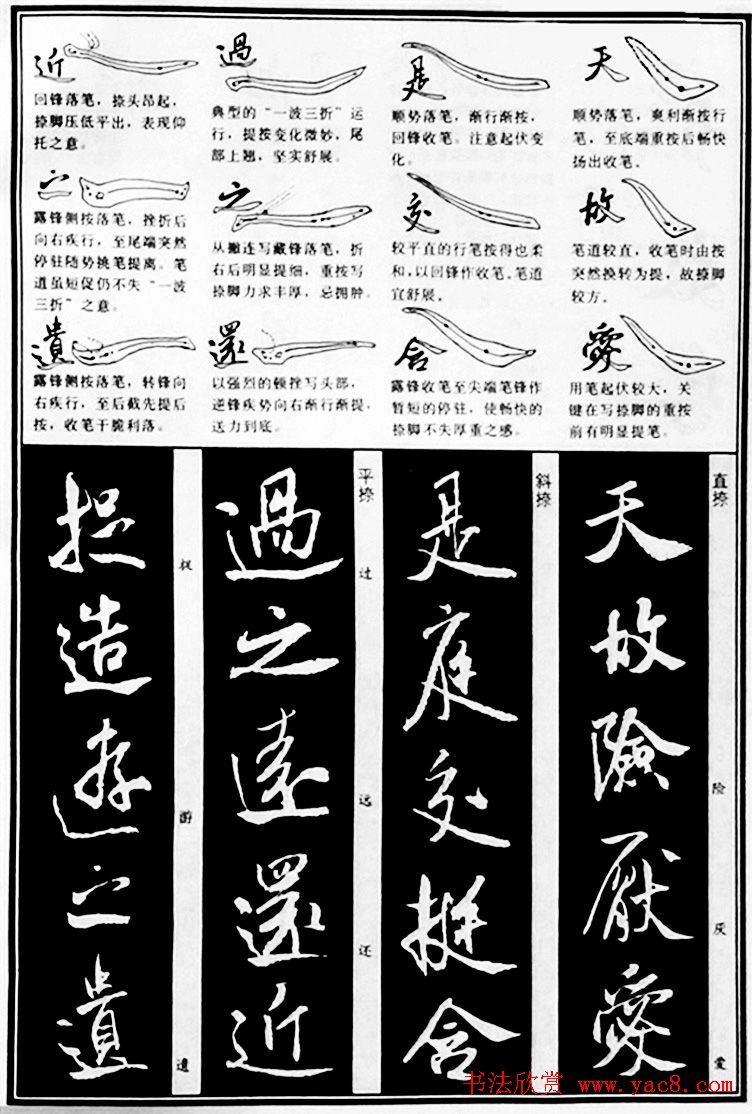 天
顺势落笔，爽利渐按行
笔，至底端重按后畅快
扬出收笔．
故
笔道较直，收笔时由按
突然换转为提，故捺脚
较方．
愛
用笔起伏较大，关
键在写捺脚的重按
前有明显提笔。
是
顺势落笔，渐行渐按，
回锋收笔。注意起伏变
化。
交
较平直的行笔按得也柔
和，以回锋作收笔。笔道
宜舒展。
含
露锋收笔至尖端笔锋作
暂短的停驻，使畅快的
捺脚不失厚重之感。
過
典型的“一波三折”运
行，提按变化微妙，尾
部上翘，坚实舒展。
之
从撇连写藏锋落笔，折
右后明显提细，重按写
捺脚力求丰厚，忌拥肿。
還
以强烈的顿挫写头部，
逆锋疾势向右渐行渐提，
送力到底。
近
回锋落笔，捺头昂起，
捺脚压低平出，表现仰
托之意。
之
露锋侧按落笔，挫折后
向右疾行，至尾端突然
停驻随势挑笔提离。笔
道虽短促仍不失“一波
三折”之意。
遺
露锋侧按落笔，转锋向
右疾行，至后截先提后
按，收笔干脆利落。
直捺
险
厌
爱
天故險厭愛
斜捺
是庭交挺含
平捺
过
远
还
過之遠還近
游
遗
捉造遊之遺
书法欣赏 www.yac8.com